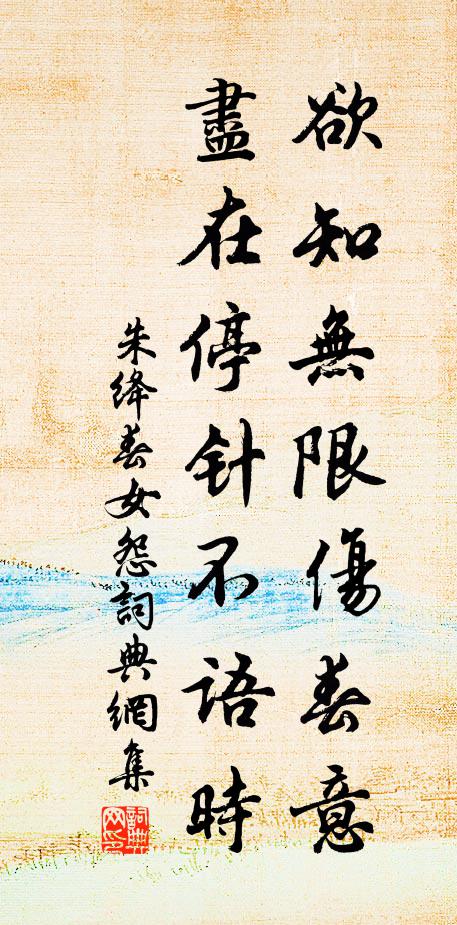 欲知無限傷春意
盡在停针不语時
朱绛春女怨詞典網集
詞典网印